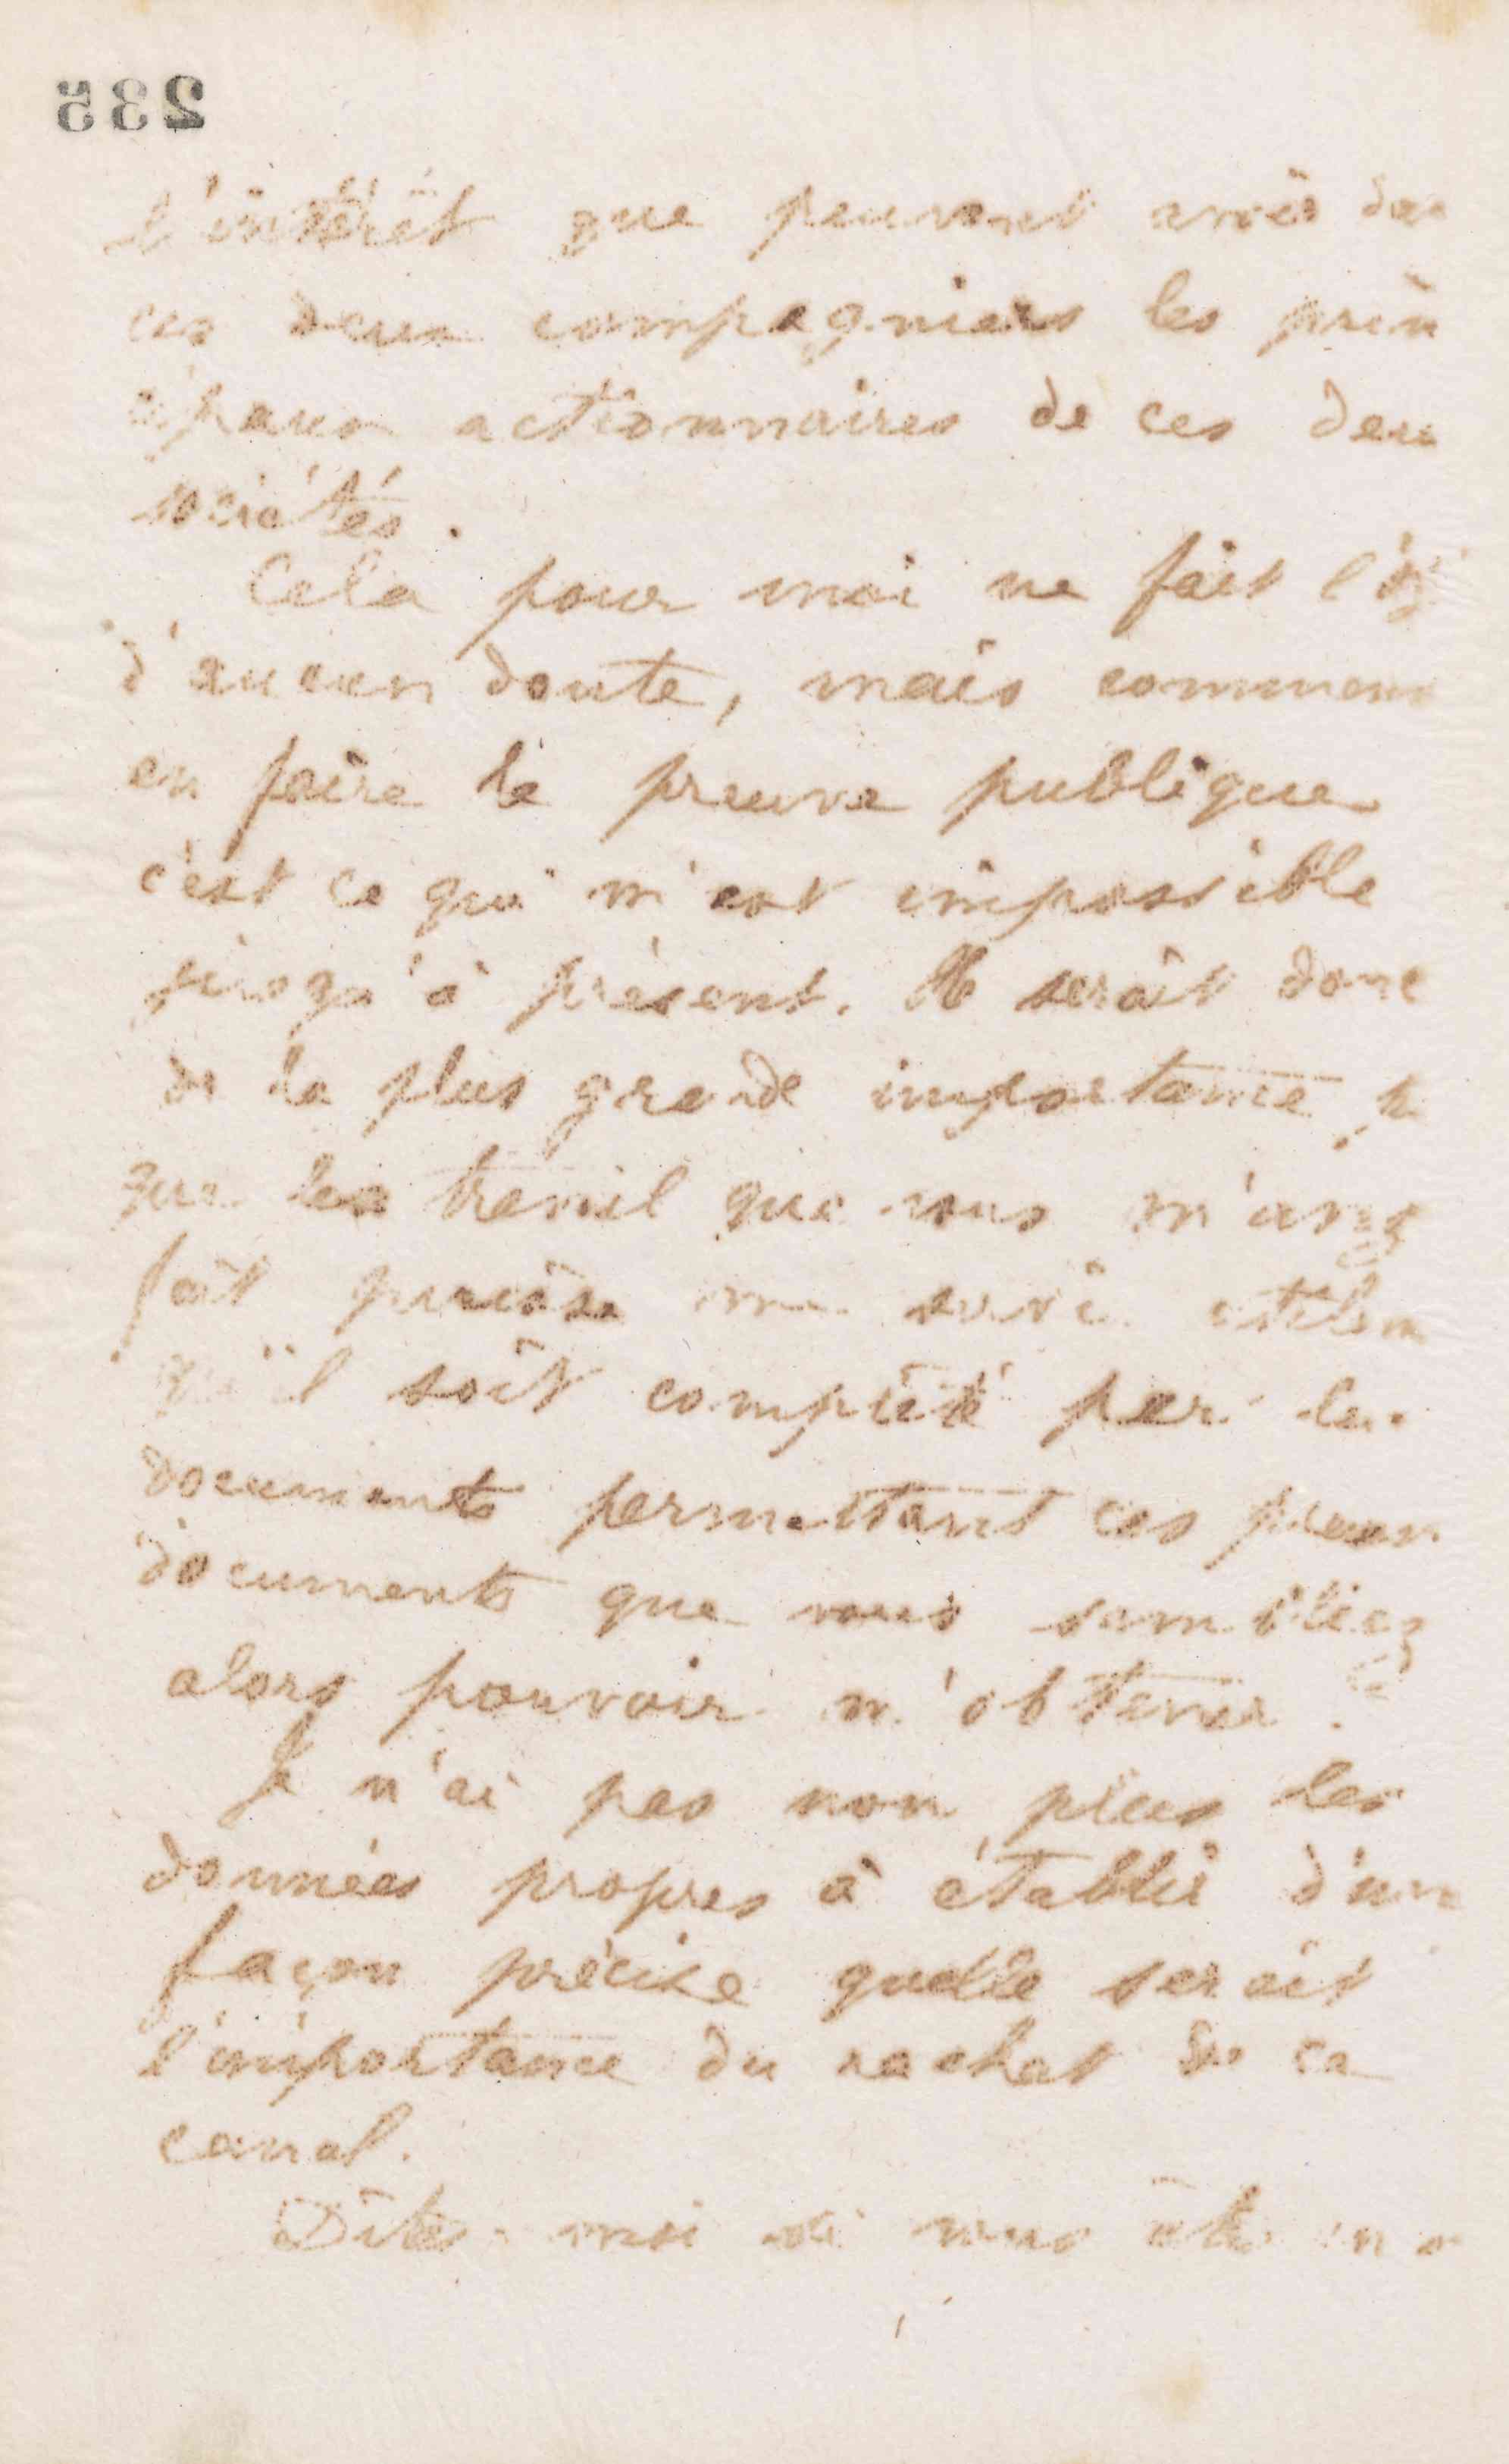 235
l'intérêt que peuvent avoir dan
ces deux compagnies les prin
cipaux actionnaires de ces deu
sociétés.
Cela pour moi ne fait l'obj
d'aucun doute, mais commen
en faire la preuve publique
c'est ce qui m'est impossible
jusqu'à présent. Il serait donc
de la plus grande importance, p
que le travail que vous m'avez
fait puisse me servir utilem
qu'il soit complété par les
documents permettant ces preuv
documents que vous sembliez
alors pouvoir m'obtenir.
Je n'ai pas non plus les
données propres à établir d'une
façon précise quelle serait
l'importance du rachat de ce
canal.
Dites-moi si vous êtes en